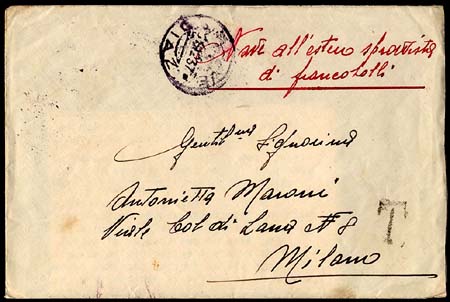 Nave all'estero sprovvista
di francobolli
Gentil.ma Signorina
Antonietta Maroni
Viale Col di Lana N 8
Milano
T